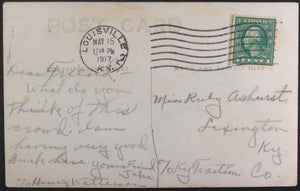 POST CARD
LOUISVILLE
MAY 15
12 30 PM
1917
KY.
Dear
What do you
think of this
crowd. I am
having very good
luck here. Your Friend
Jake
c/o Henry Watterson
Miss Ruby Ashurst,
Lexington
Ky.
c/o Ky Traction Co.